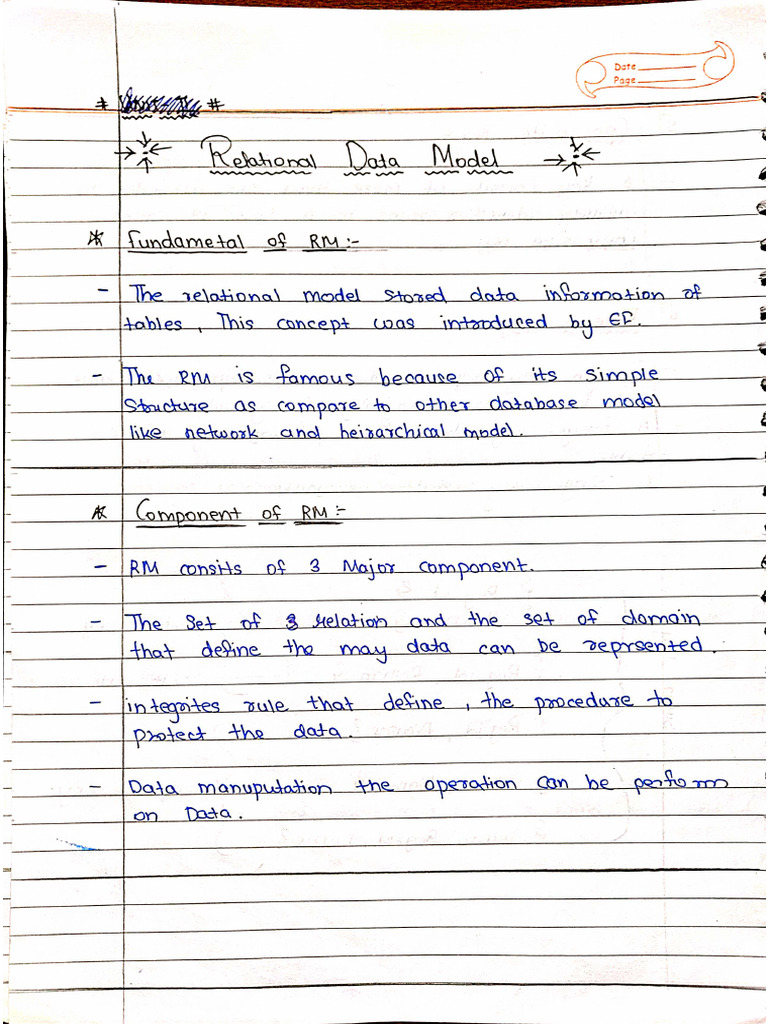 Date
Page
Relational Data Model
* Fundametal of RM :-
- The relational model stored data information of
tables, This concept was introduced by EF.
- The RM is famous because of its simple
structure as compare to other database model
like network and heirarchical model.
* Component of RM :-
- RM consits of 3 Major component.
- The set of relation and the set of domain
that define the may data can be reprsented.
- integrites rule that define, the procedure to
protect the data.
- Data manuputation the operation can be perform
on Data.